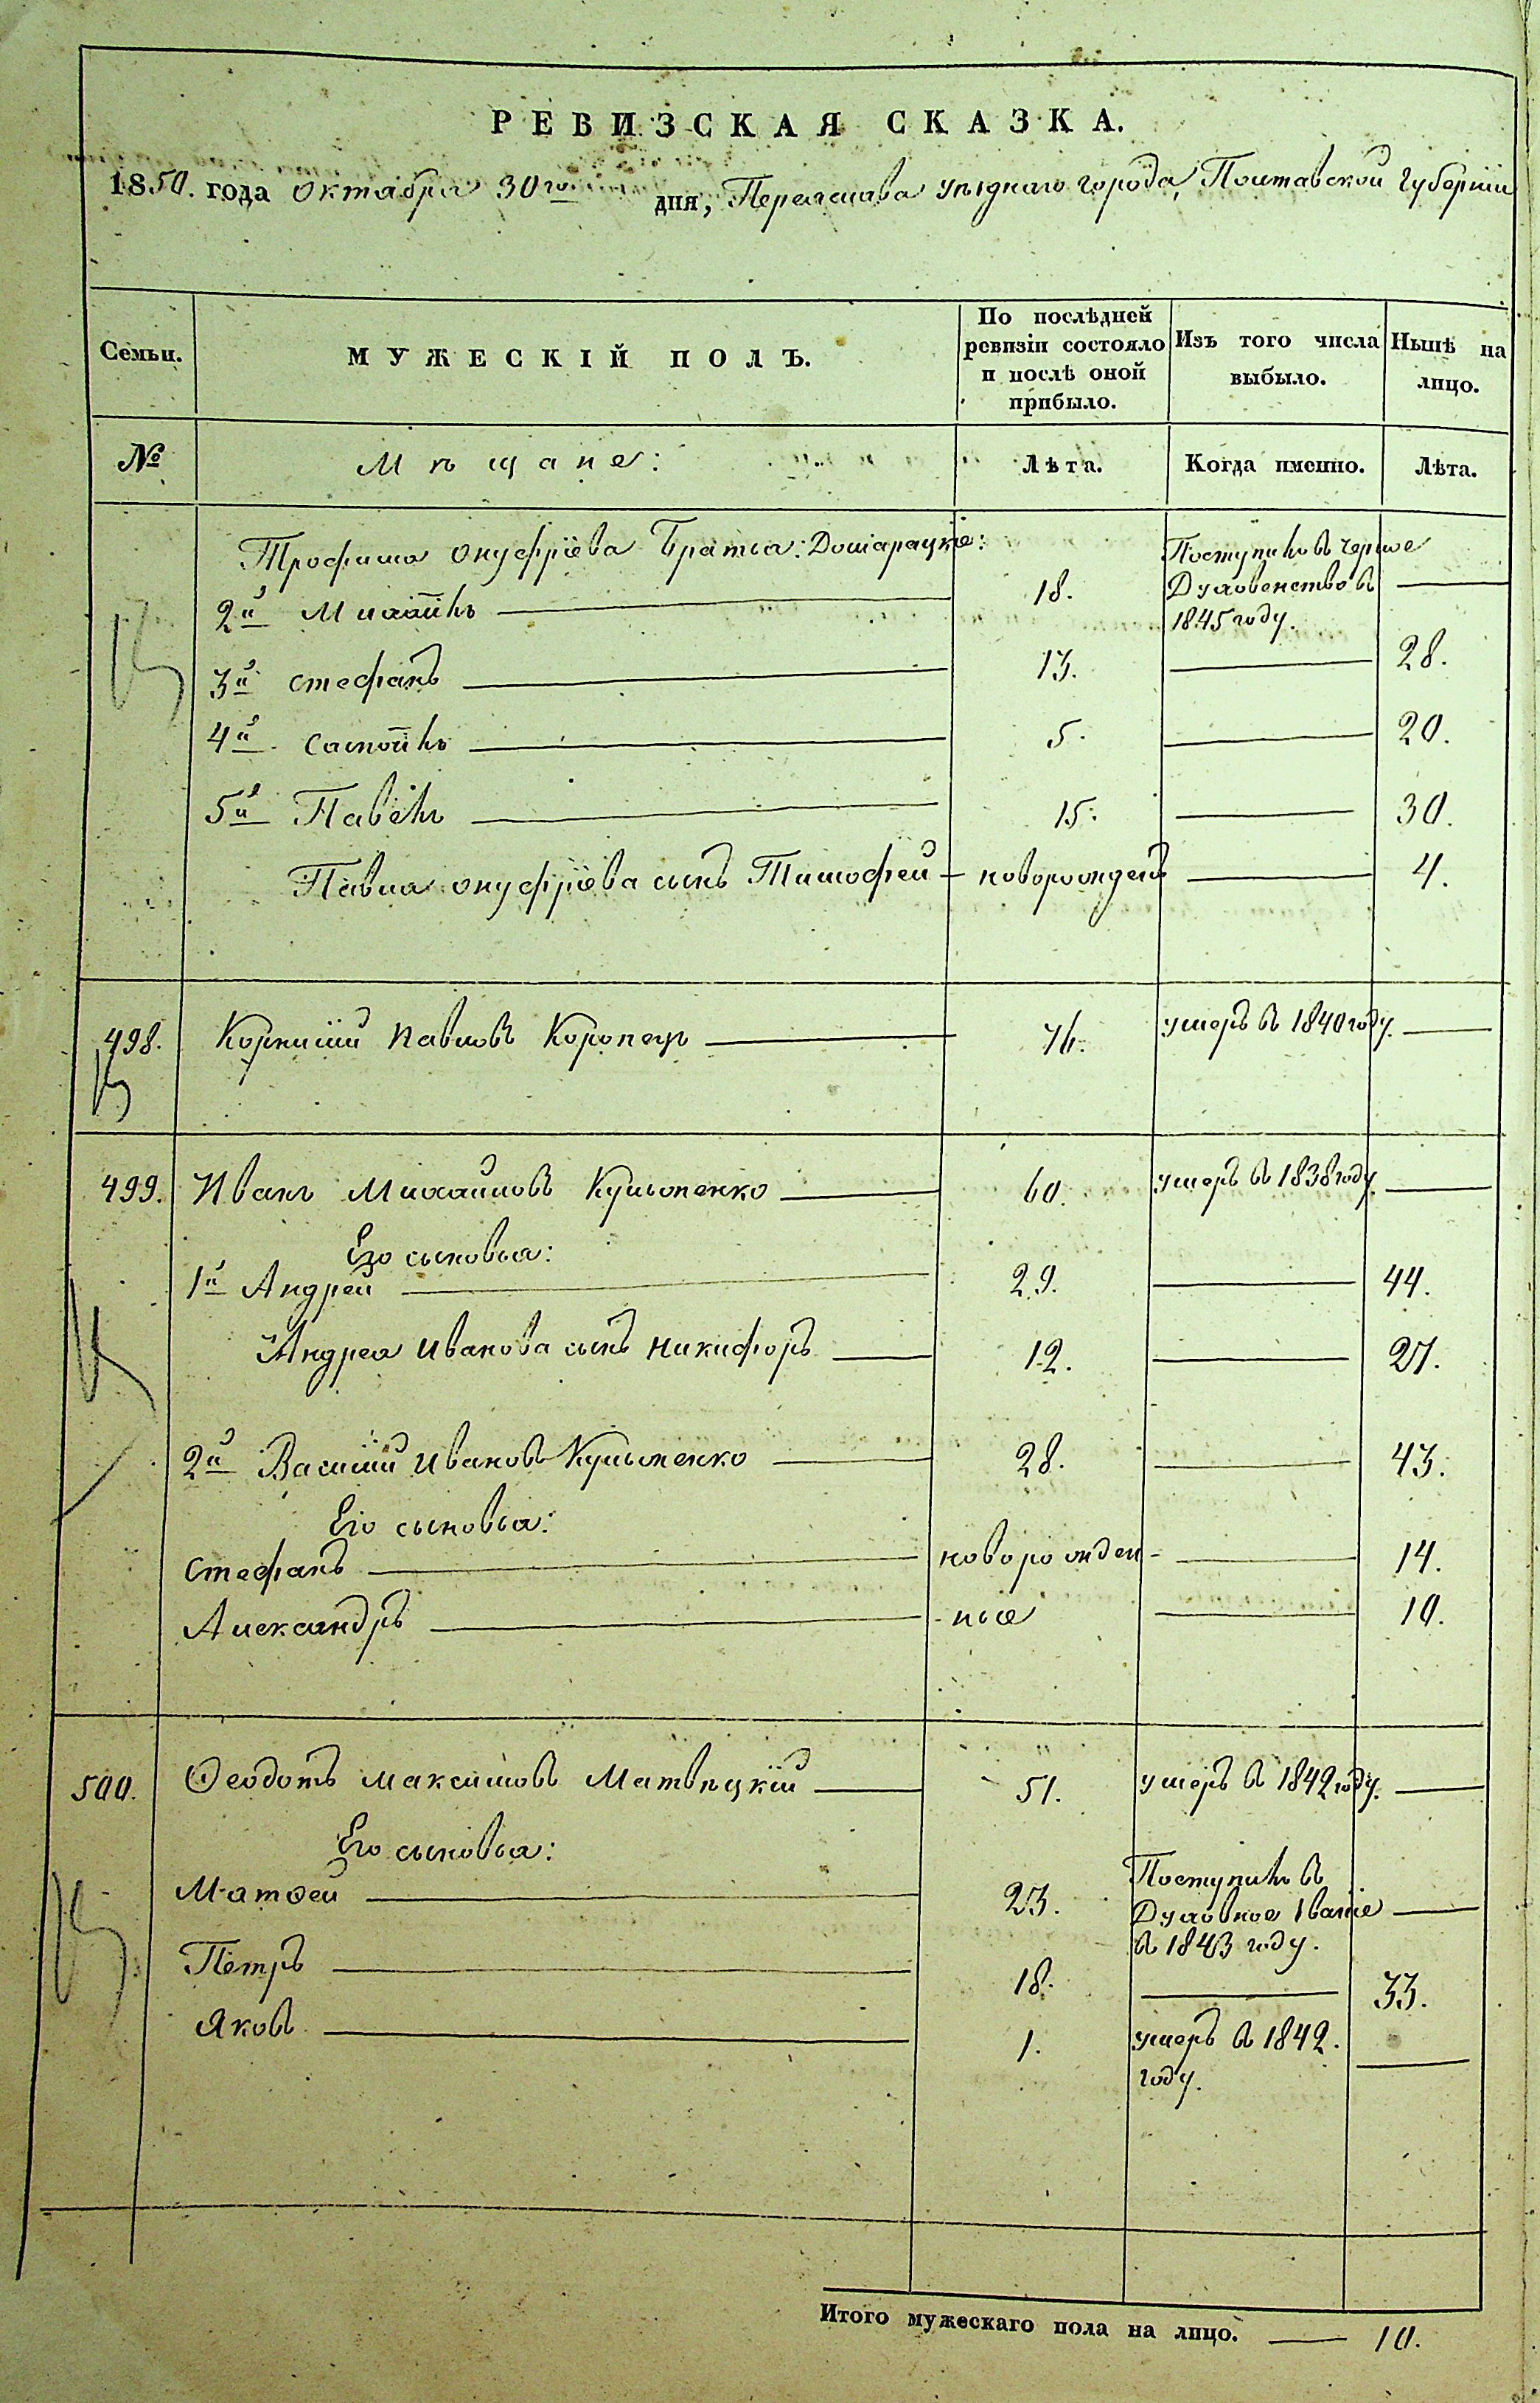 РЕВИЗСКАЯ СКАЗКА.
1850. года Октября 30го дня, Переяслава уѣзднаго города, Полтавской Губерніи
Семьи.
МУЖЕСКІЙ ПОЛЪ.
По послѣдней ревизіи состояло и послѣ оной прибыло.
Изъ того числа выбыло.
Нынѣ на лицо.
№
Мѣщане:
Лѣта.
Когда именно.
Лѣта.
Трофима Онуфріева Братья:
2й Михаилъ 18. Поступилъ въ Черное Духовенство въ 1845 году.
3й Стефанъ 13. 28.
4й Самоилъ 5. 20.
5й Павелъ 15. 30.
Павла Онуфріева сынъ Тимофей новорожденъ 4.
498. Корнилій Павловъ Коропецъ 76. умеръ въ 1840 году.
499. Иванъ Михайловъ Кульопенко 60. умеръ въ 1838 году.
Его сыновья:
1й Андрей 29. 44.
Андрея Иванова сынъ Никифоръ 12. 27.
2й Василій Ивановъ Кульопенко 28. 43.
Его сыновья:
Стефанъ новорожден- 14.
Александръ -ные 10.
500. Ѳеодотъ Максимовъ Матвѣцкій 51. умеръ въ 1842 году.
Его сыновья:
Матѳей 23. Поступилъ въ Духовное Званіе въ 1843 году.
Петръ 18. 33.
Яковъ 1. умеръ въ 1842. году.
Итого мужескаго пола на лицо. 10.